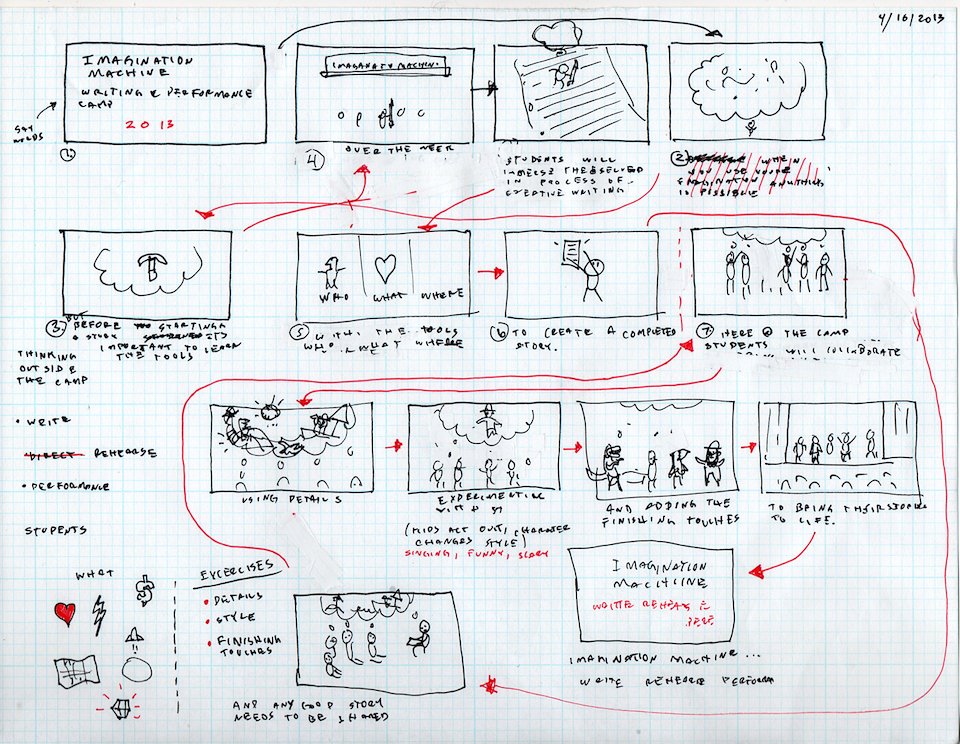 4/16/2013
IMAGINATION
MACHINE
WRITING & PERFORMANCE
CAMP
2013
SAY
WORDS
1.
4
OVER THE WEEK
STUDENTS WILL
IN PROCESS OF
CREATIVE WRITING
2
WHEN
YOU USE YOUR
IMAGINATION ANYTHING
IS POSSIBLE
3.
BUT
BEFORE STARTING
A STORY IT'S
IMPORTANT TO LEARN
THE TOOLS
WHO WHAT WHERE
5
WITH THE TOOLS
WHO WHAT WHERE
6
TO CREATE A COMPLETED
STORY.
7.
HERE @ THE CAMP
STUDENTS
WILL COLLABORATE
THINKING
OUTSIDE
THE CAMP
• WRITE
DIRECT REHEARSE
• PERFORMANCE
STUDENTS
USING DETAILS
EXPERIMENTING
(KIDS ACT OUT, CHARACTER
CHANGES STYLE)
SINGING, FUNNY, SCARY
AND ADDING THE
FINISHING TOUCHES
TO BRING THEIR STORIES
TO LIFE.
WHAT
EXCERCISES
• DETAILS
• STYLE
• FINISHING
TOUCHES
IMAGINATION
MACHINE
AND ANY GOOD STORY
NEEDS TO BE SHARED
IMAGINATION MACHINE...
WRITE REHERSE PERFORM